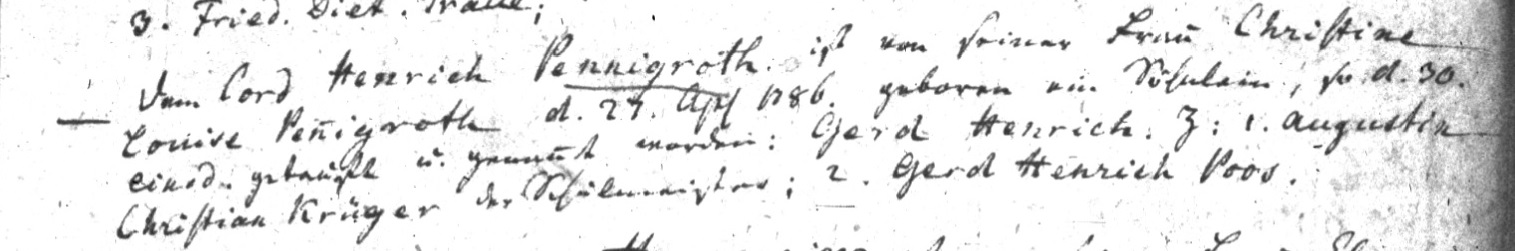 3. Fried. Diet.
Dem Cord Henrich Pennigroth. ist von seiner Frau Christine
Louise Pen̄igroth d. 27. Apr 1786. geboren ein Söhnlein, so d. 30.
eiusd. getauft u. genan̄t worden: Gerd Henrich. Z: 1. Augustin
Christian Krüger der Schulmeister; 2. Gerd Henrich Poos.